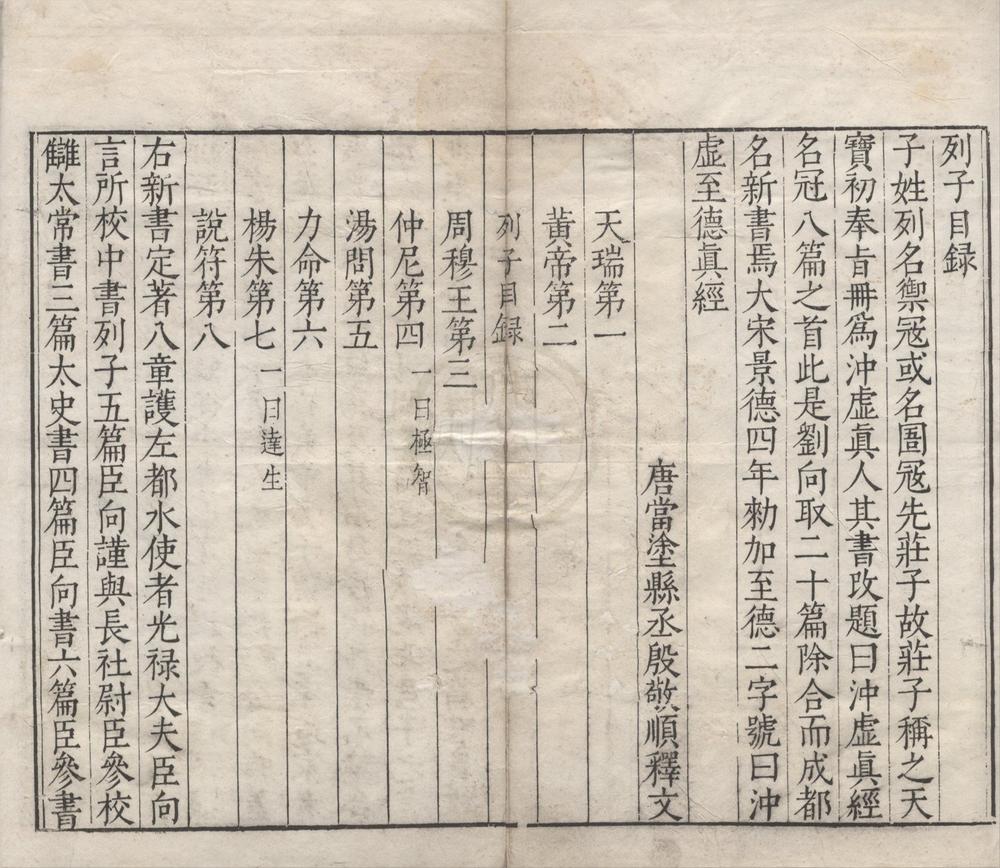 列子目録
子姓列名禦冦或名圄冦先莊子故莊子稱之天
寶初奉㫖冊爲沖虛眞人其書改題曰沖虛眞經
名冠八篇之首此是劉向取二十篇除合而成都
名新書焉大宋景德四年勑加至德二字號曰沖
虛至德眞經
唐當塗縣丞殷敬順釋文
天瑞第一
黃帝第二
列子目録
周穆王第三
仲尼第四 一曰極智
湯問第五
力命第六
楊朱第七 一曰達生
說符第八
右新書定著八章護左都水使者光禄大夫臣向
言所校中書列子五篇臣向謹與長社尉臣參校
讎太常書三篇太史書四篇臣向書六篇臣參書